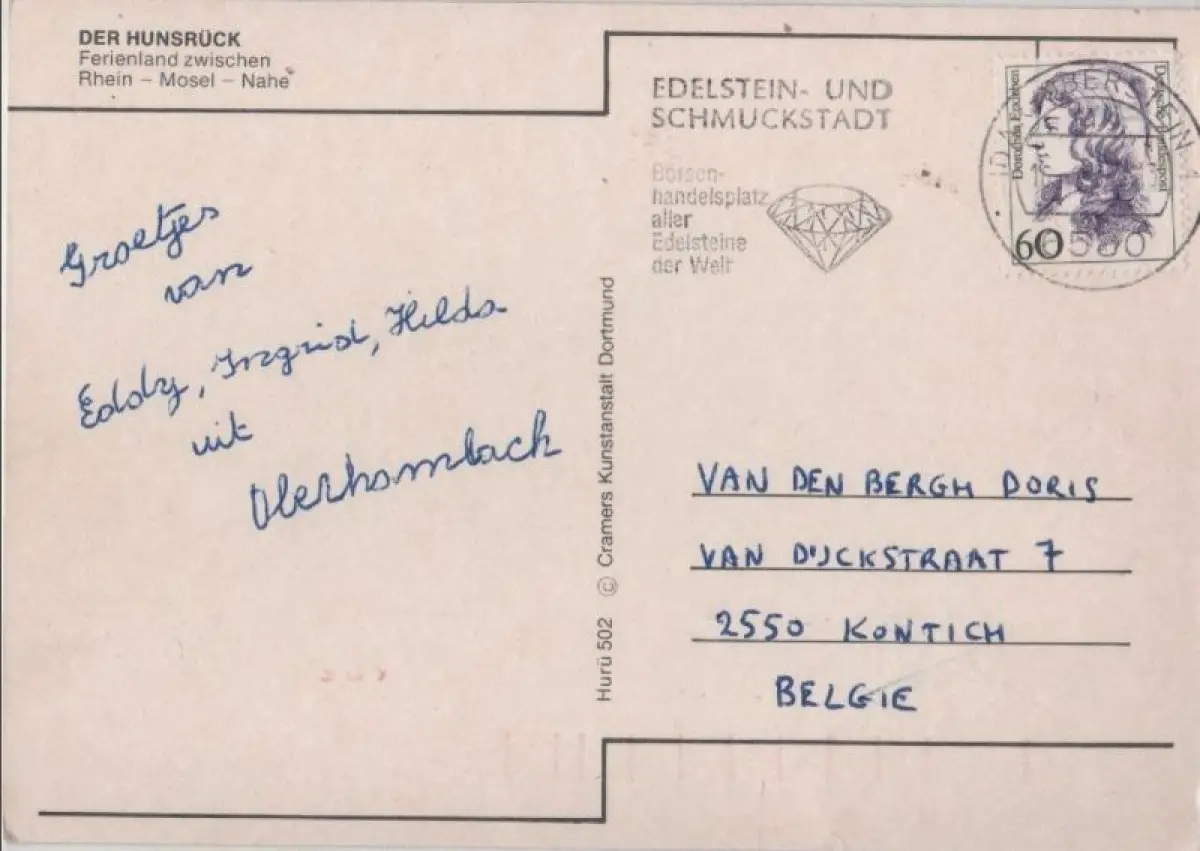 DER HUNSRÜCK
Ferienland zwischen
Rhein – Mosel – Nahe
Groetjes
van
Eddy, Ingrid, Hilda
uit
Oberhambach
Hurü 502 © Cramers Kunstanstalt Dortmund
EDELSTEIN- UND
SCHMUCKSTADT
Börsen-
handelsplatz
aller
Edelsteine
der Welt
Dorothea Erxleben
Deutsche Bundespost
60
6580
VAN DEN BERGH DORIS
VAN DIJCKSTRAAT 7
2550 KONTICH
BELGIE